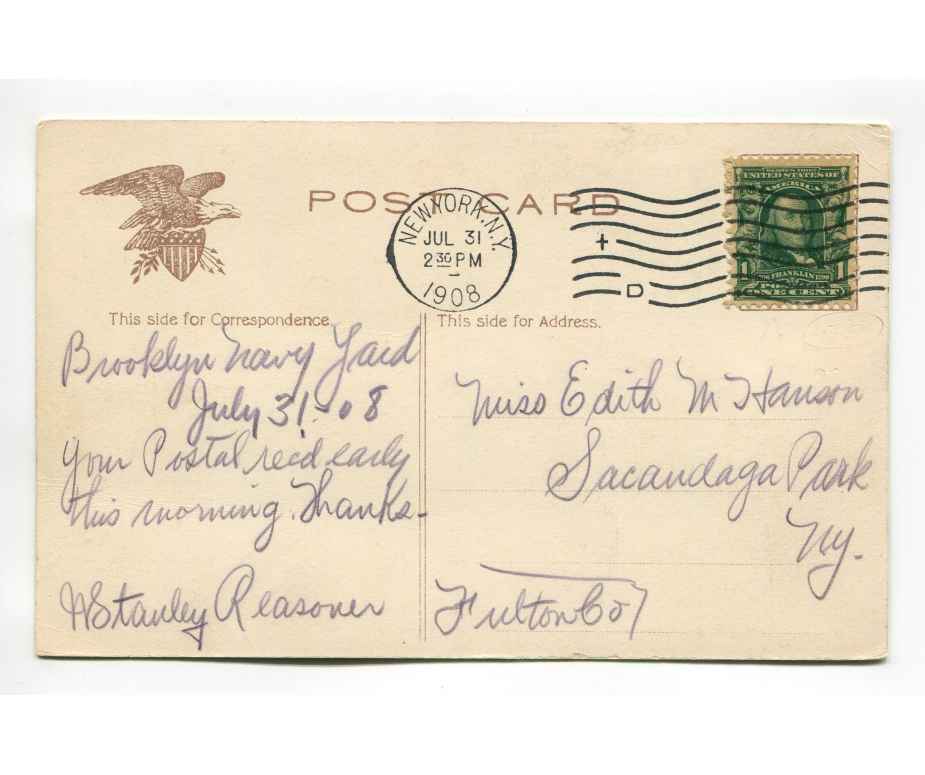 POST CARD
NEW YORK, N.Y.
JUL 31
2 30 PM
1908
D
UNITED STATES OF
AMERICA
FRANKLIN
1 1
POSTAGE
ONE CENT
This side for Correspondence.
This side for Address.
Brooklyn Navy Yard
July 31-08
Your Postal rec'd early
this morning. Thanks-
HStanley Reasoner
Miss Edith M Hanson
Sacandaga Park
Ny.
Fulton Co